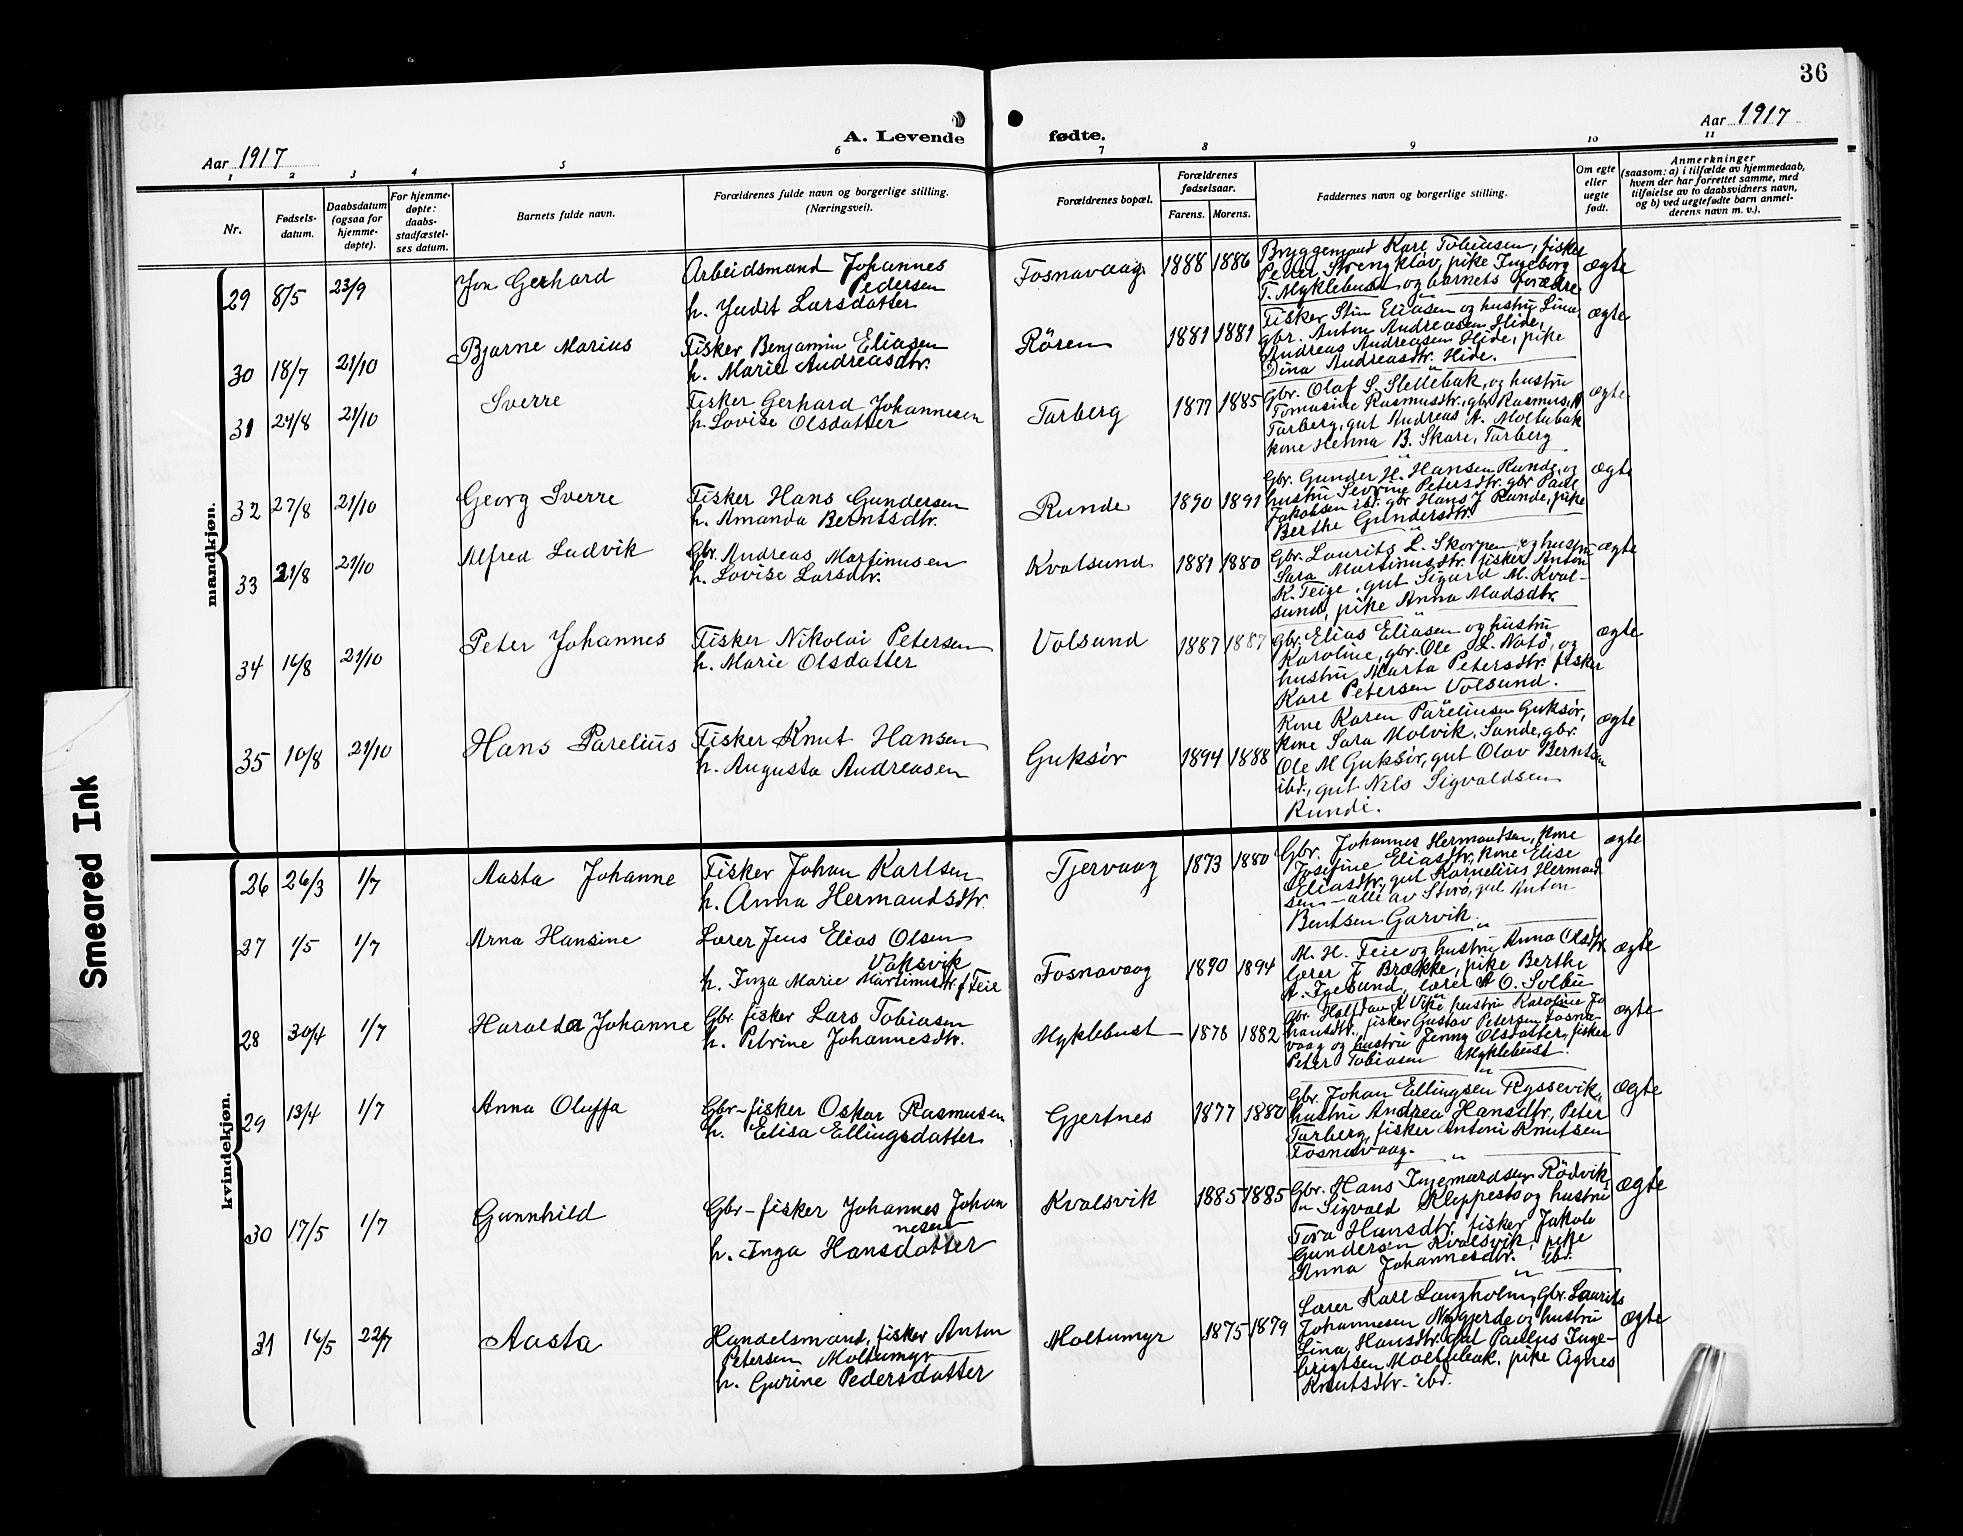 36
A. Levende fødte.
Aar 1917
Aar 1917
1 2 3 4 5 6 7 8 9 10 11
Nr.
Fødsels-
datum.
Daabsdatum
(ogsaa for
hjemme-
døpte).
For hjemme-
døpte:
daabs-
stadfæstel-
ses datum.
Barnets fulde navn.
Forældrenes fulde navn og borgerlige stilling.
(Næringsvei).
Forældrenes bopæl.
Forældrenes
fødselsaar.
Farens. Morens.
Faddernes navn og borgerlige stilling.
Om egte
eller
uegte
født.
Anmerkninger
(saasom: a) i tilfælde av hjemmedaab,
hvem der har forrettet samme, med
tilføielse av to daabsvidners navn,
og b) ved uegtefødte barn anmel-
derens navn m. v.).
mandkjøn.
29 8/5 23/9 Jon Gerhard
Arbeidsmand Johannes
Pedersen
h. Judit Larsdatter
Fosnavaag 1888 1886
Bryggemand Karl Tobiasen, fisker
Peder Strengkløv, pike Ingeborg
T. Myklebust og barnets forældre
ægte
30 18/7 21/10 Bjarne Marius
Fisker Benjamin Eliasen
h. Marie Andreasdtr.
Røren 1881 1881
Fisker Stin Eliasen og hustru Lina,
gbr. Anton Andreasen Hide,
Andreas Andreasen Hide, pike
Dina Andreasdtr. Hide.
ægte
31 24/8 21/10 Sverre
Fisker Gerhard Johannesen
h. Lovise Olsdatter
Tarberg 1877 1885
Gbr. Olaf S. Slettebak, og hustru
Tomasine Rasmusdtr, gbr Rasmus
Tarberg, gut Andreas A. Moltubak
kone Henna B. Skare, Tarberg
ægte
32 27/8 21/10 Georg Sverre
Fisker Hans Gundersen
h. Amanda Berntsdtr.
Runde 1890 1891
Gbr. Gunder H. Hansen Runde, og
hustru Sevrine Petersdtr. gbr Paul
Jakobsen ibd. gbr Hans J Runde, pike
Berthe Gundersdtr.
ægte
33 21/8 21/10 Alfred Ludvik
Gbr. Andreas Martinusen
h. Lovise Larsdtr.
Kvalsund 1881 1880
Gbr. Laurits L. Skorpen, og hustru
Sara Martinusdtr. fisker Anton
K. Teige, gut Sigurd M. Kval-
sund, pike Anna Madsdtr.
ægte
34 16/8 21/10 Peter Johannes
Fisker Nikolai Petersen
h. Marie Olsdatter
Volsund 1887 1887
Gbr. Elias Eliasen og hustru
Karoline, gbr. Ole L. Natø, og
hustru Marta Petersdtr. fisker
Karl Petersen Volsund.
ægte
35 10/8 21/10 Hans Parelius
Fisker Knut Hansen
h. Augusta Andreasen
Guksør 1894 1888
Kone Karen Pareliusen Guksør,
kone Sara Molvik, Sande, gbr.
Ole M Guksør, gut Olav Berntsen
ibd., gut Nils Sigvaldsen
Runde.
ægte
kvindekjøn.
26 26/3 1/7 Aasta Johanne
Fisker Johan Karlsen
h. Anna Hermandsdtr.
Tjervaag 1873 1880
Gbr. Johannes Hermandsen, kone
Josefine Eliasdtr, kone Elise
Eliasdtr, gut Kornelius Hermand
sen - alle av Storø, gut Anton
Bentsen Garvik.
ægte
27 1/5 1/7 Arna Hansine
Lærer Jens Elias Olsen
Vaksvik
h. Inga Marie Martinusdtr. f Teie
Fosnavaag 1890 1894
M. H. Teie og hustru Anna Olsdtr,
lærer J Brække, pike Berthe
A. Igesund, lærer A O. Solbu
ægte
28 30/4 1/7 Haralda Johanne
Gbr. fisker Lars Tobiasen
h. Petrine Johannesdtr.
Myklebust 1878 1882
Gbr Halfdan K Vike hustru Karoline Jo
hansdtr., fisker Gustav Petersen Fosna-
vaag og hustru Jenny Olsdatter, fisker
Peter Tobiasen Myklebust.
ægte
29 13/4 1/7 Anna Oluffa
Gbr-fisker Oskar Rasmusen
h. Elisa Ellingsdatter
Gjertnes 1877 1880
Gbr. Johan Ellingsen Ryssevik,
hustru Andrea Hansdtr, Peter
Tarberg, fisker Antoni Knutsen
Fosnavaag.
ægte
30 17/5 1/7 Gunnhild
Gbr-fisker Johannes Johan
nesen
h. Inga Hansdatter
Kvalsvik 1885 1885
Gbr. Hans Ingemardsen Rødvik,
Sigvald Kleppestø og hustru
Tora Hansdtr, fisker Jakob
Gundersen Kvalsvik, pike
Anna Johannesdtr. ibd.
ægte
31 16/5 22/7 Aasta
Handelsmand, fisker Anton
Petersen Moltumyr
h. Gurine Pedersdatter
Moltumyr 1875 1879
Lærer Karl Langholm, Gbr. Laurits
Johannesen Nygjerde og hustru
Lina Hansdtr. gut Paulus Inge-
brigtsen Moltubak, pike Agnes
Knutsdtr. ibd.
ægte
Smeared Ink